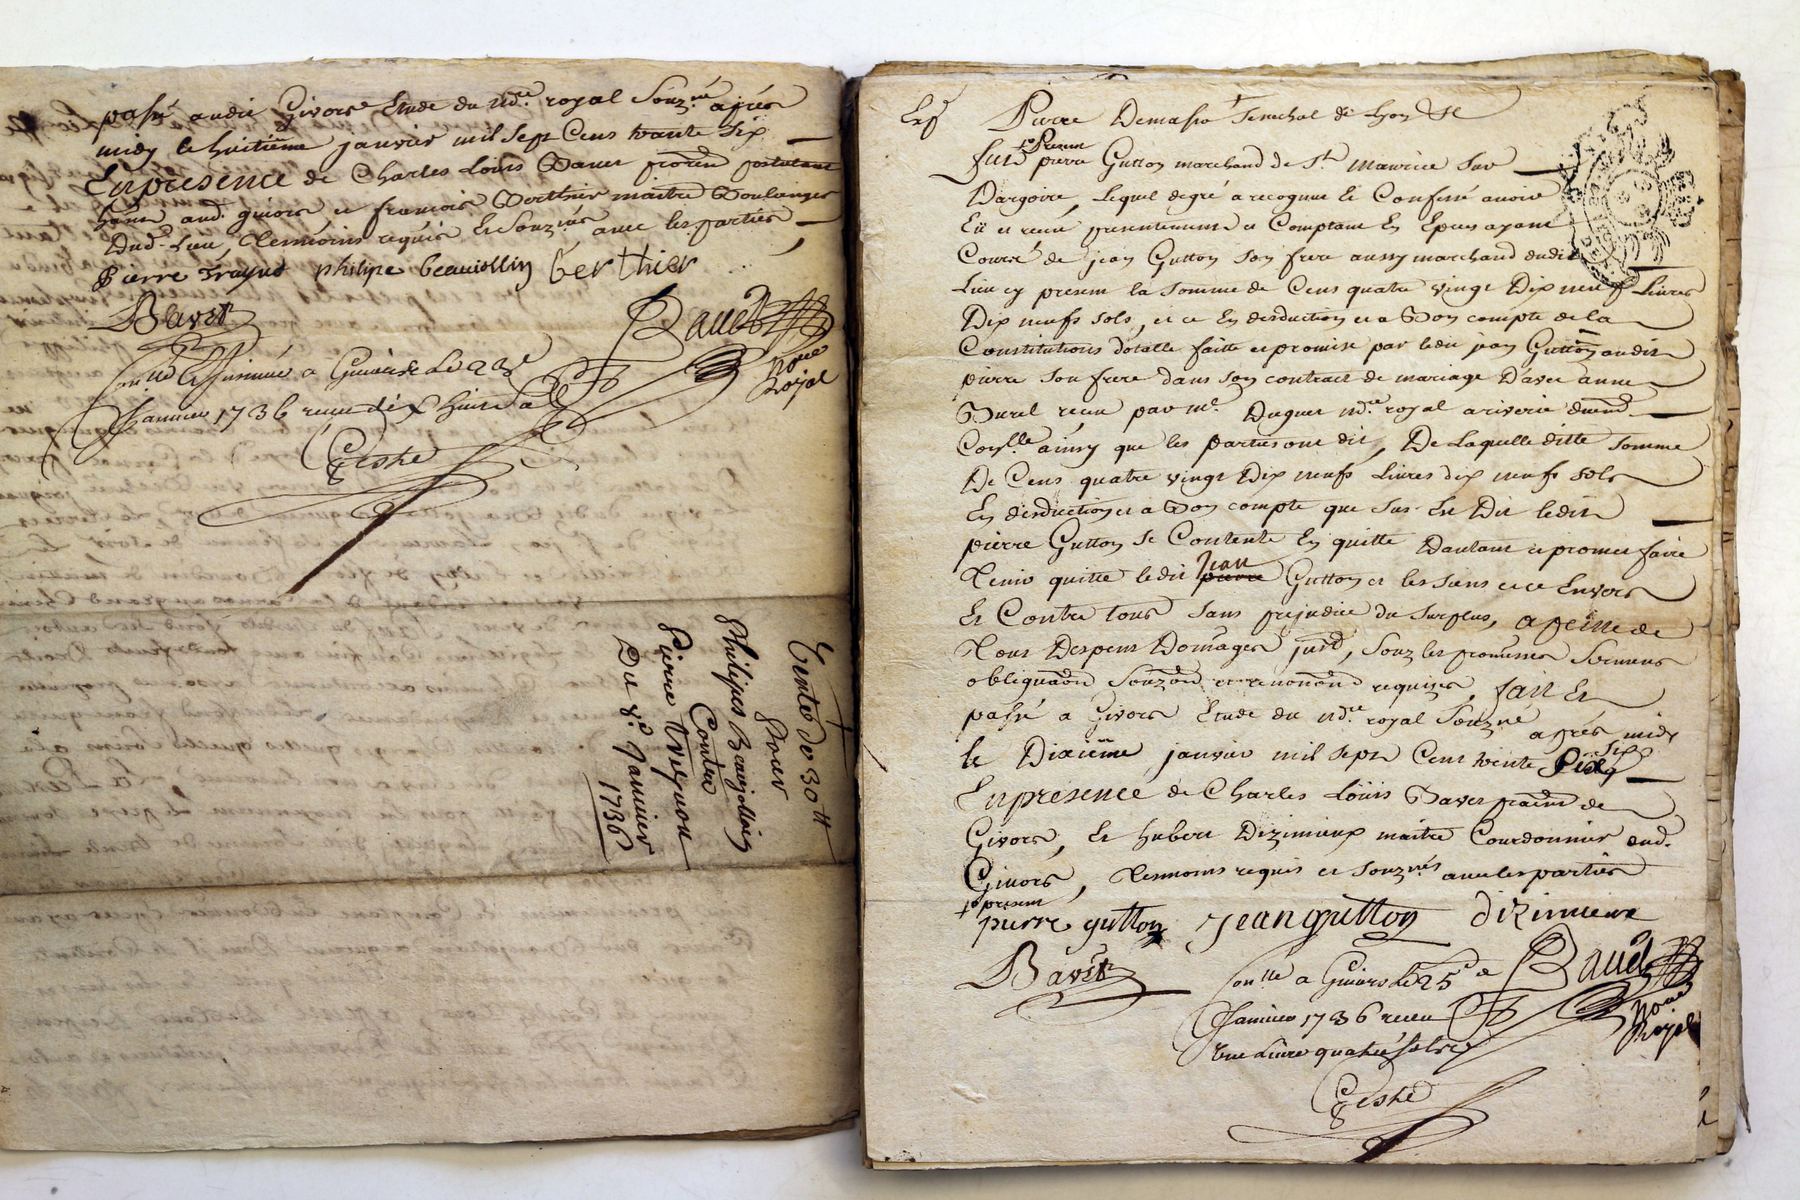 passé audit Givors Etude du n.re royal Souz.né apres
midy le huitième janvier mil sept Cens trante Six
En presence de Charles Loüis Bavet praticien postulant
aud. givors, et françois Berthier maitre Boulanger
dud. Lieu, Temoins requis Et Souz.nés avec les parties
Pierre Traynd philipe beauiollin berthier
Bavet
Baud
No.re
Royal
a Givors Le 23e
Janvier 1736 receu dix huit
Geshe
Vente de 30 tt
Pour
Philipes Beaujollin
Contre
Pierre Treynon
Du 8e Janvier
1736
Exp
Pierre Demasso Senechal de Lyon
fut p.r Present pierre Gutton marchand de S.t Maurice Sur
Dargoire, Lequel de gré a recognu Et Confessé avoir
Eü et receu presentement et Comptant En Especes ayant
Cours de jean Gutton Son frere aussy marchand dudit
Lieu cy present la Somme de Cens quatre vingt Dix neuf Livres
Dix neufs Sols, et ce En desduction et a Bon compte de la
Constitutions dotalle faitte et promise par ledit jean Gutton audit
pierre Son frere dans Son contract de mariage D'avec anne
Burel receu par m.e Duguet n.re royal a riverie
ainsy que les parties ont dit, De Laquelle ditte Somme
De Cens quatre vingt Dix neufs Livres dix neufs Sols
En desduction et a Bon compte que Sus Est Dit ledit
pierre Gutton Se Contente En quitte Dautant et promet faire
Tenir quitte ledit pierre Jean Gutton et les Siens et ce Envers
Et Contre tous Sans prejudice du Surplus, a peine de
Tous Despens Domages, Souz les promesses Serment
obligaon Soumon et renonon requizes, fait Et
passé a Givors Etude du n.re royal Souz.né apres midy
le Dixiëme janvier mil sept Cent trente Six
En presence de Charles Loüis Bavet praticien de
Givors, Et hubert Dizimieux maitre Courdonnier aud.
Givors, Temoins requis et Souz.nés avec les parties
present
pierre gutton Jean gutton dizimieux
Bavet
Baud
No.re
Royal
Con.lle a Givors Le 25e
Janvier 1736 receu
une Livre quatre sols
Geshe